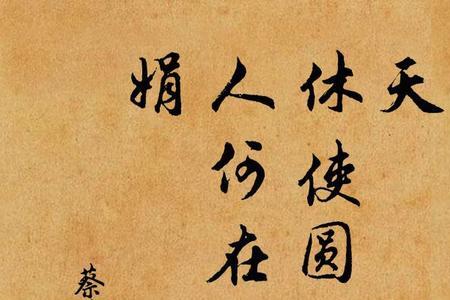 天
休使圆
人何在
娟
蔡